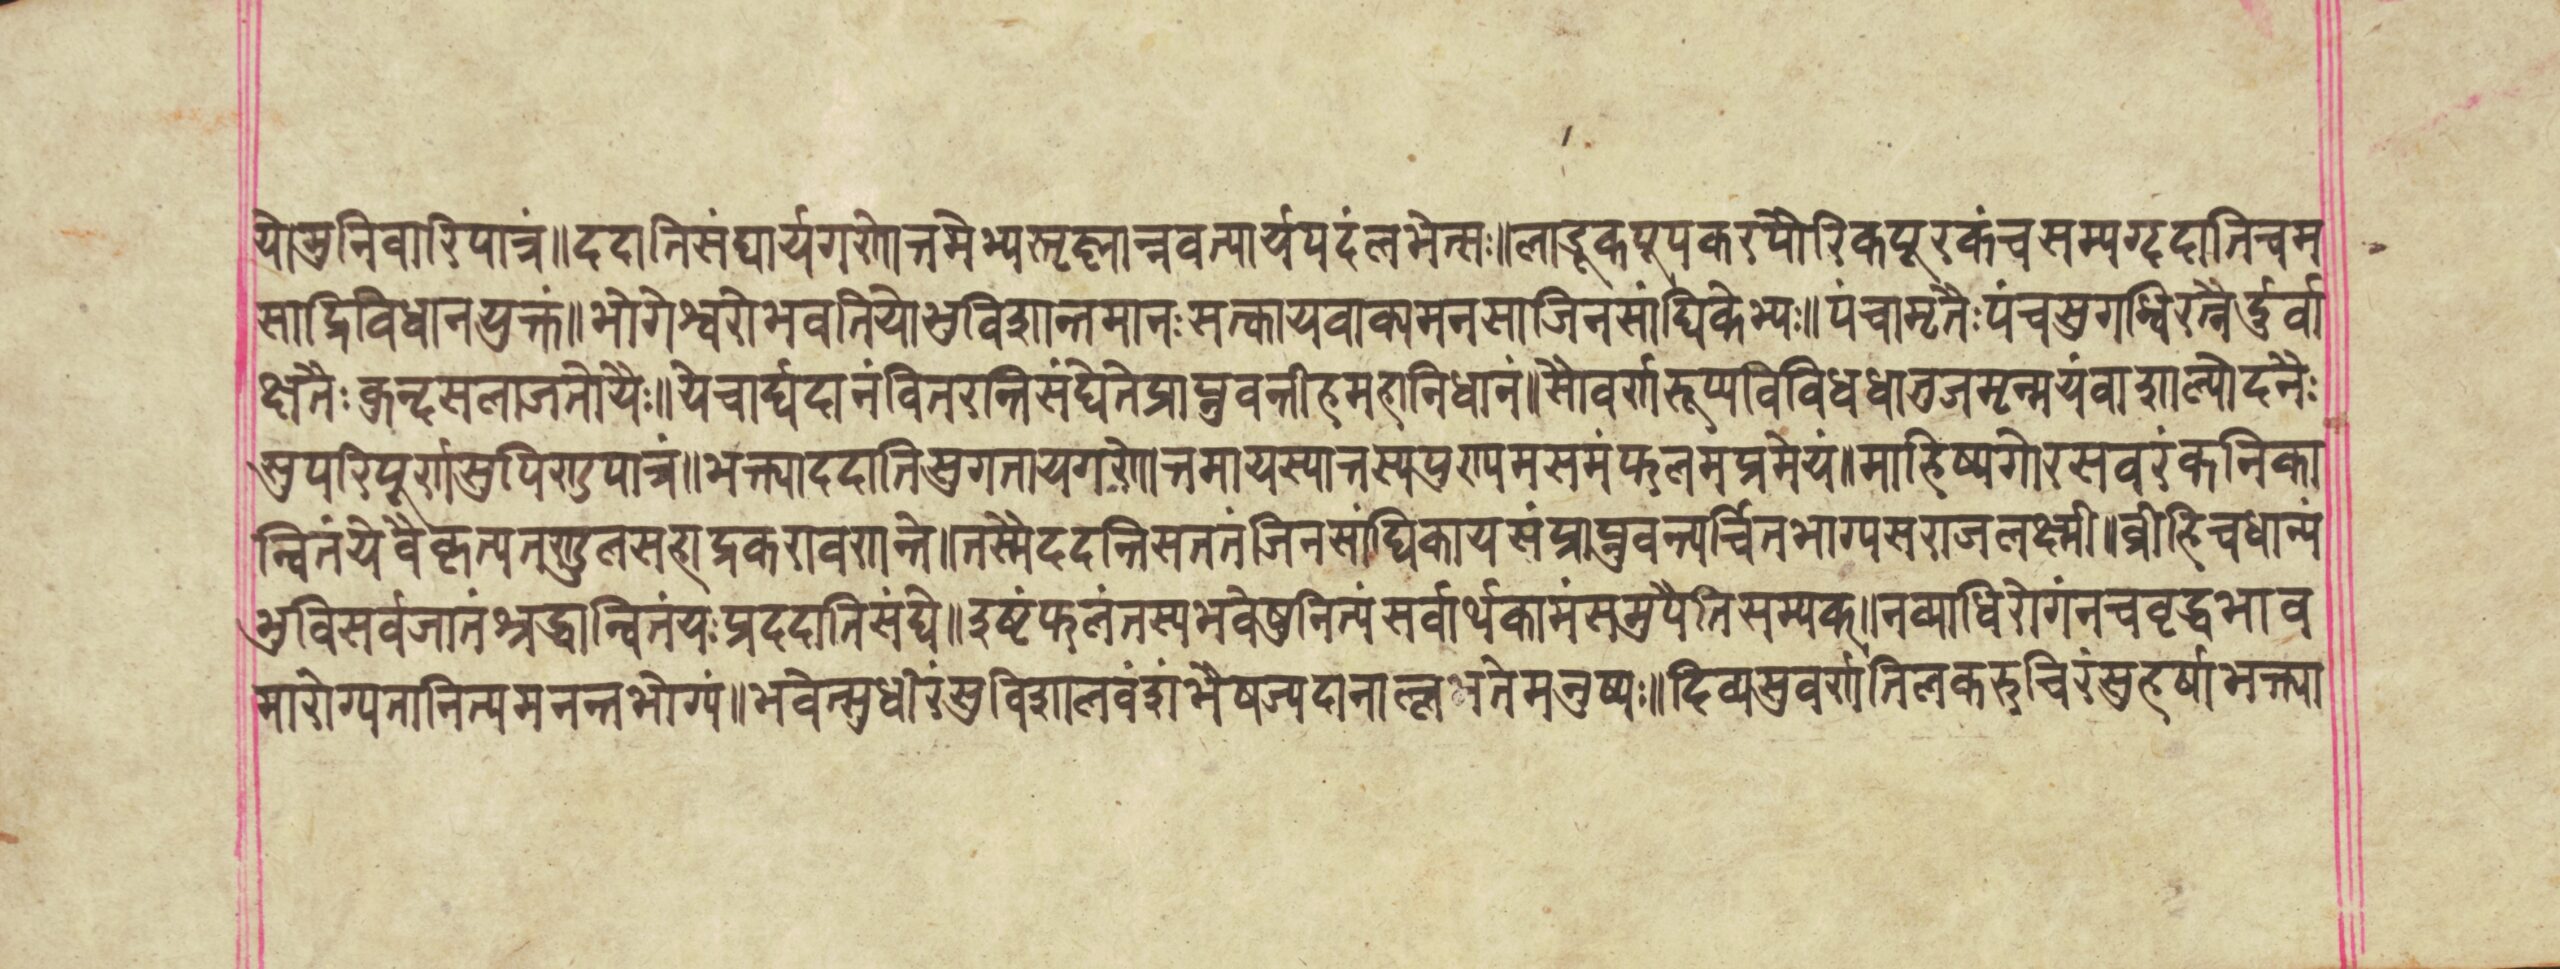 योमुनिवारिपात्रं॥ददातिसंघार्यगणोत्तमेभ्यस्तृह्लान्नवत्यार्यपदंलभेत्सः॥लाडूकपूपकरपौरिकपूरकंचसम्यग्ददातिन्चम
साद्विविधानयुक्तं॥भोगेश्वरोभवतियोभुविशान्तमानःसत्कायवाक्यमनसाजिनसांघिकेभ्यः॥पंचामृतैःपंचसुगन्धिरत्नैर्दुर्वा
क्षतैःकुन्दसलाजतोयैः॥येचार्घदानंवितरन्तिसंघेतेप्राप्नुवन्तीहमहानिधानं॥सौवर्णरूप्यविविधधातुजमृन्मयंवाशाल्योदनैः
सुपरिपूर्णसुपिण्डपात्रं॥भक्त्याददातिसुगतायगणोत्तमायस्यात्तस्यपुण्यमसमंफलमप्रमेयं॥माहिष्यगोरसवरंकनिका
न्वितंयेवैकृत्यतण्डुलसहाद्रकरावणान्ते॥तस्मैददन्तिसततंजिनसांघिकायसंप्राप्नुवन्त्यर्च्चितभाग्यसराजलक्ष्मी॥व्रीहिचधान्यं
भुविसर्वजातंश्रद्धान्वितंयःप्रददातिसंघे॥इष्टंफलंतस्यभवेषुनित्यंसर्वार्थकामंसमुपैतिसम्यक्॥नव्याधिरोगंनचवृद्धभाव
मारोग्यतानित्यमनन्तभोग्यं॥भवेत्सुधीरंसुविशालवंशंभैषज्यदानाल्लभतेमनुष्यः॥दिव्यसुवर्णतिलकरुचिरंसुहर्षाभक्त्या